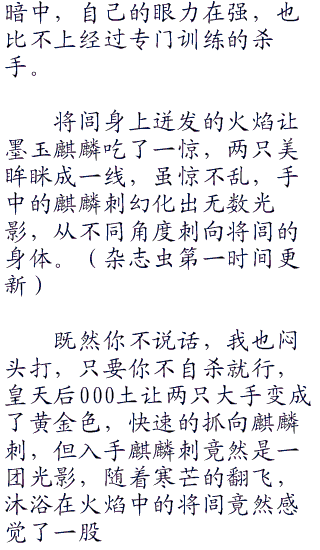 暗中，自己的眼力在强，也
比不上经过专门训练的杀
手。
将闾身上迸发的火焰让
墨玉麒麟吃了一惊，两只美
眸眯成一线，虽惊不乱，手
中的麒麟刺幻化出无数光
影，从不同角度刺向将闾的
身体。（杂志虫第一时间更
新）
既然你不说话，我也闷
头打，只要你不自杀就行，
皇天后000土让两只大手变成
了黄金色，快速的抓向麒麟
刺，但入手麒麟刺竟然是一
团光影，随着寒芒的翻飞，
沐浴在火焰中的将闾竟然感
觉了一股